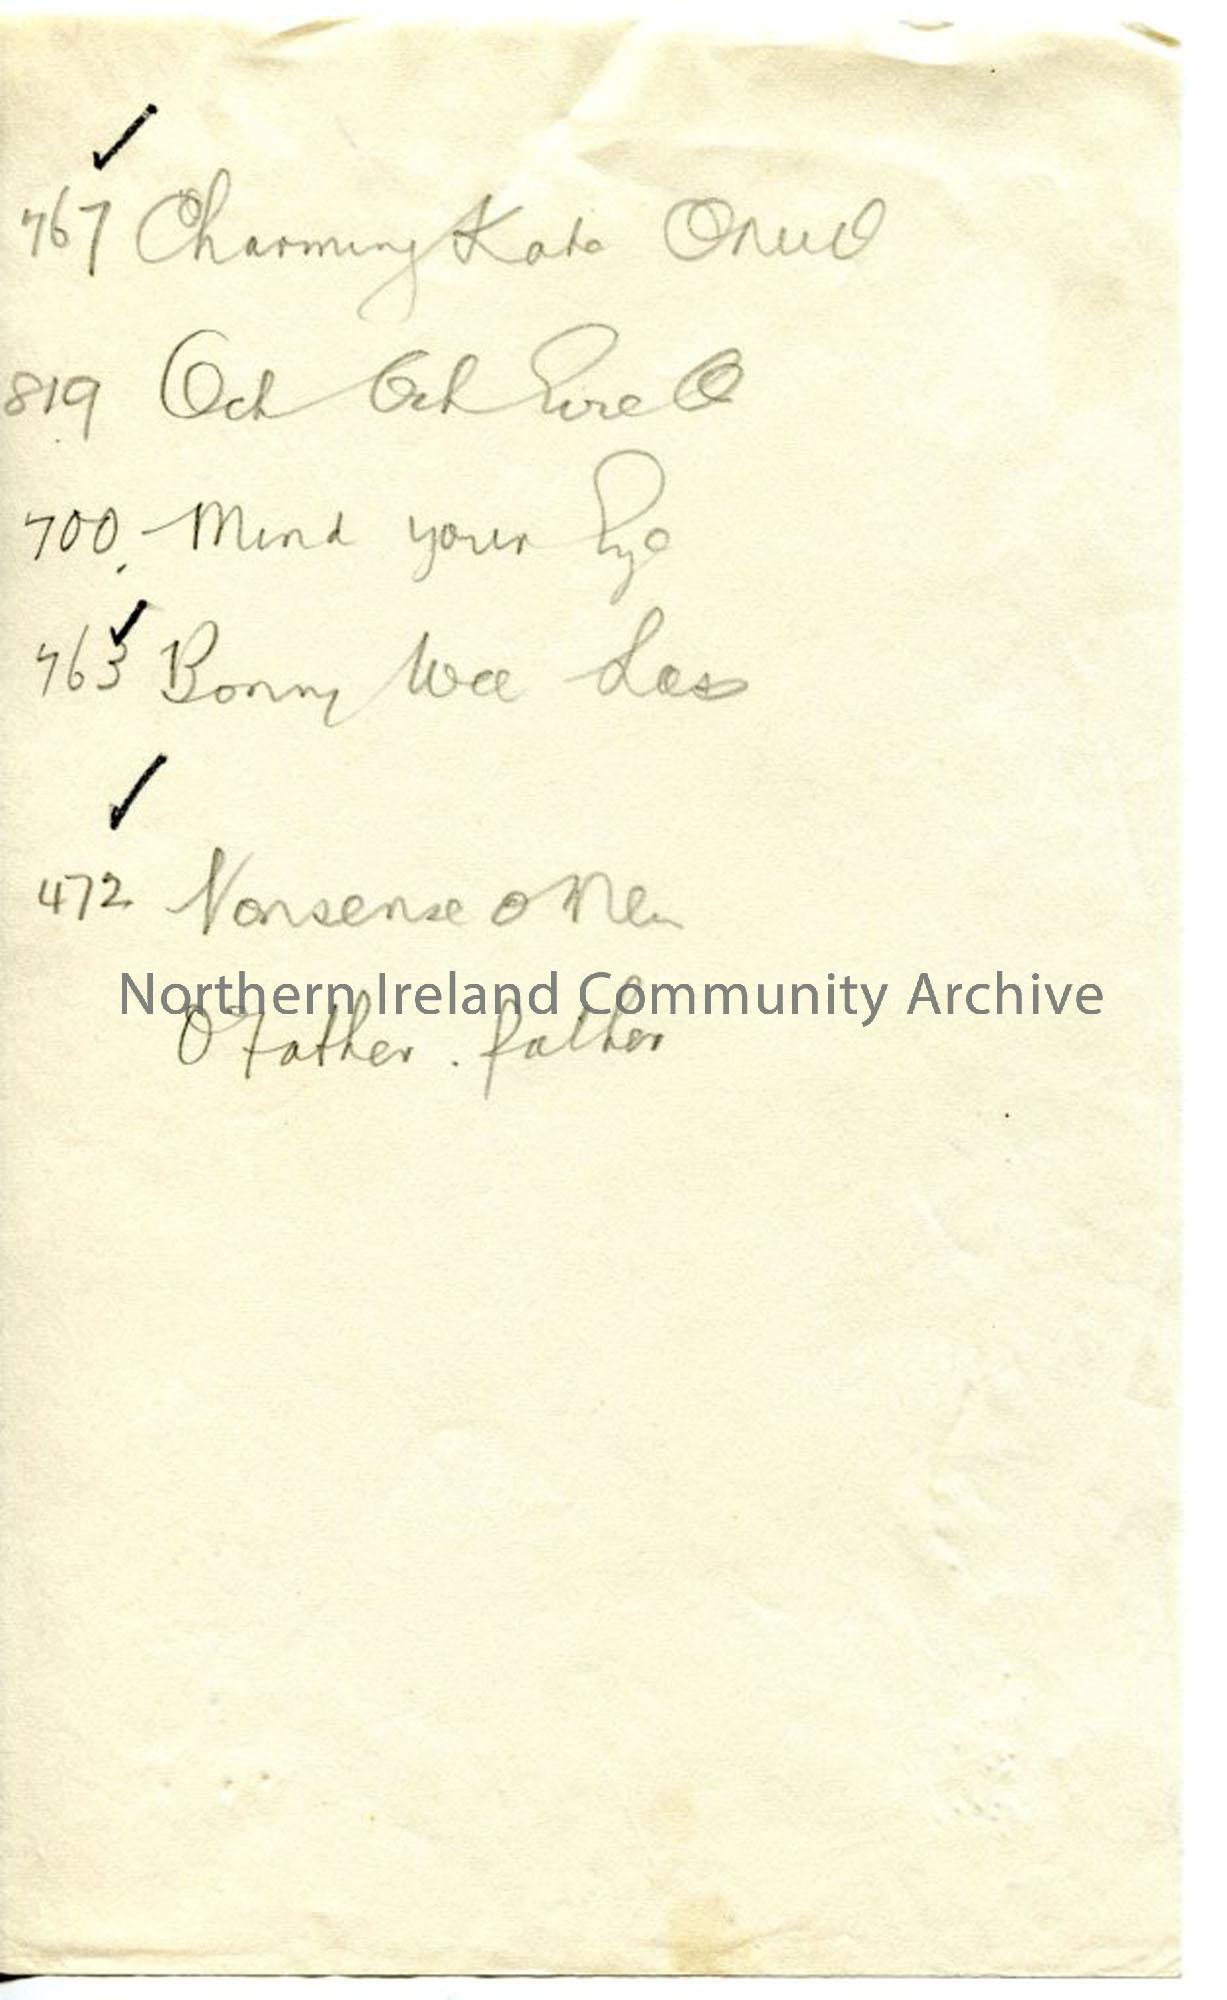 ✓
767 Charming Kate Oneill
819 Och Och Eire O
700. Mind your Eye
✓
763 Bonny Wee Lass
✓
472 Nonsense o Men
Northern Ireland Community Archive
O Father. father